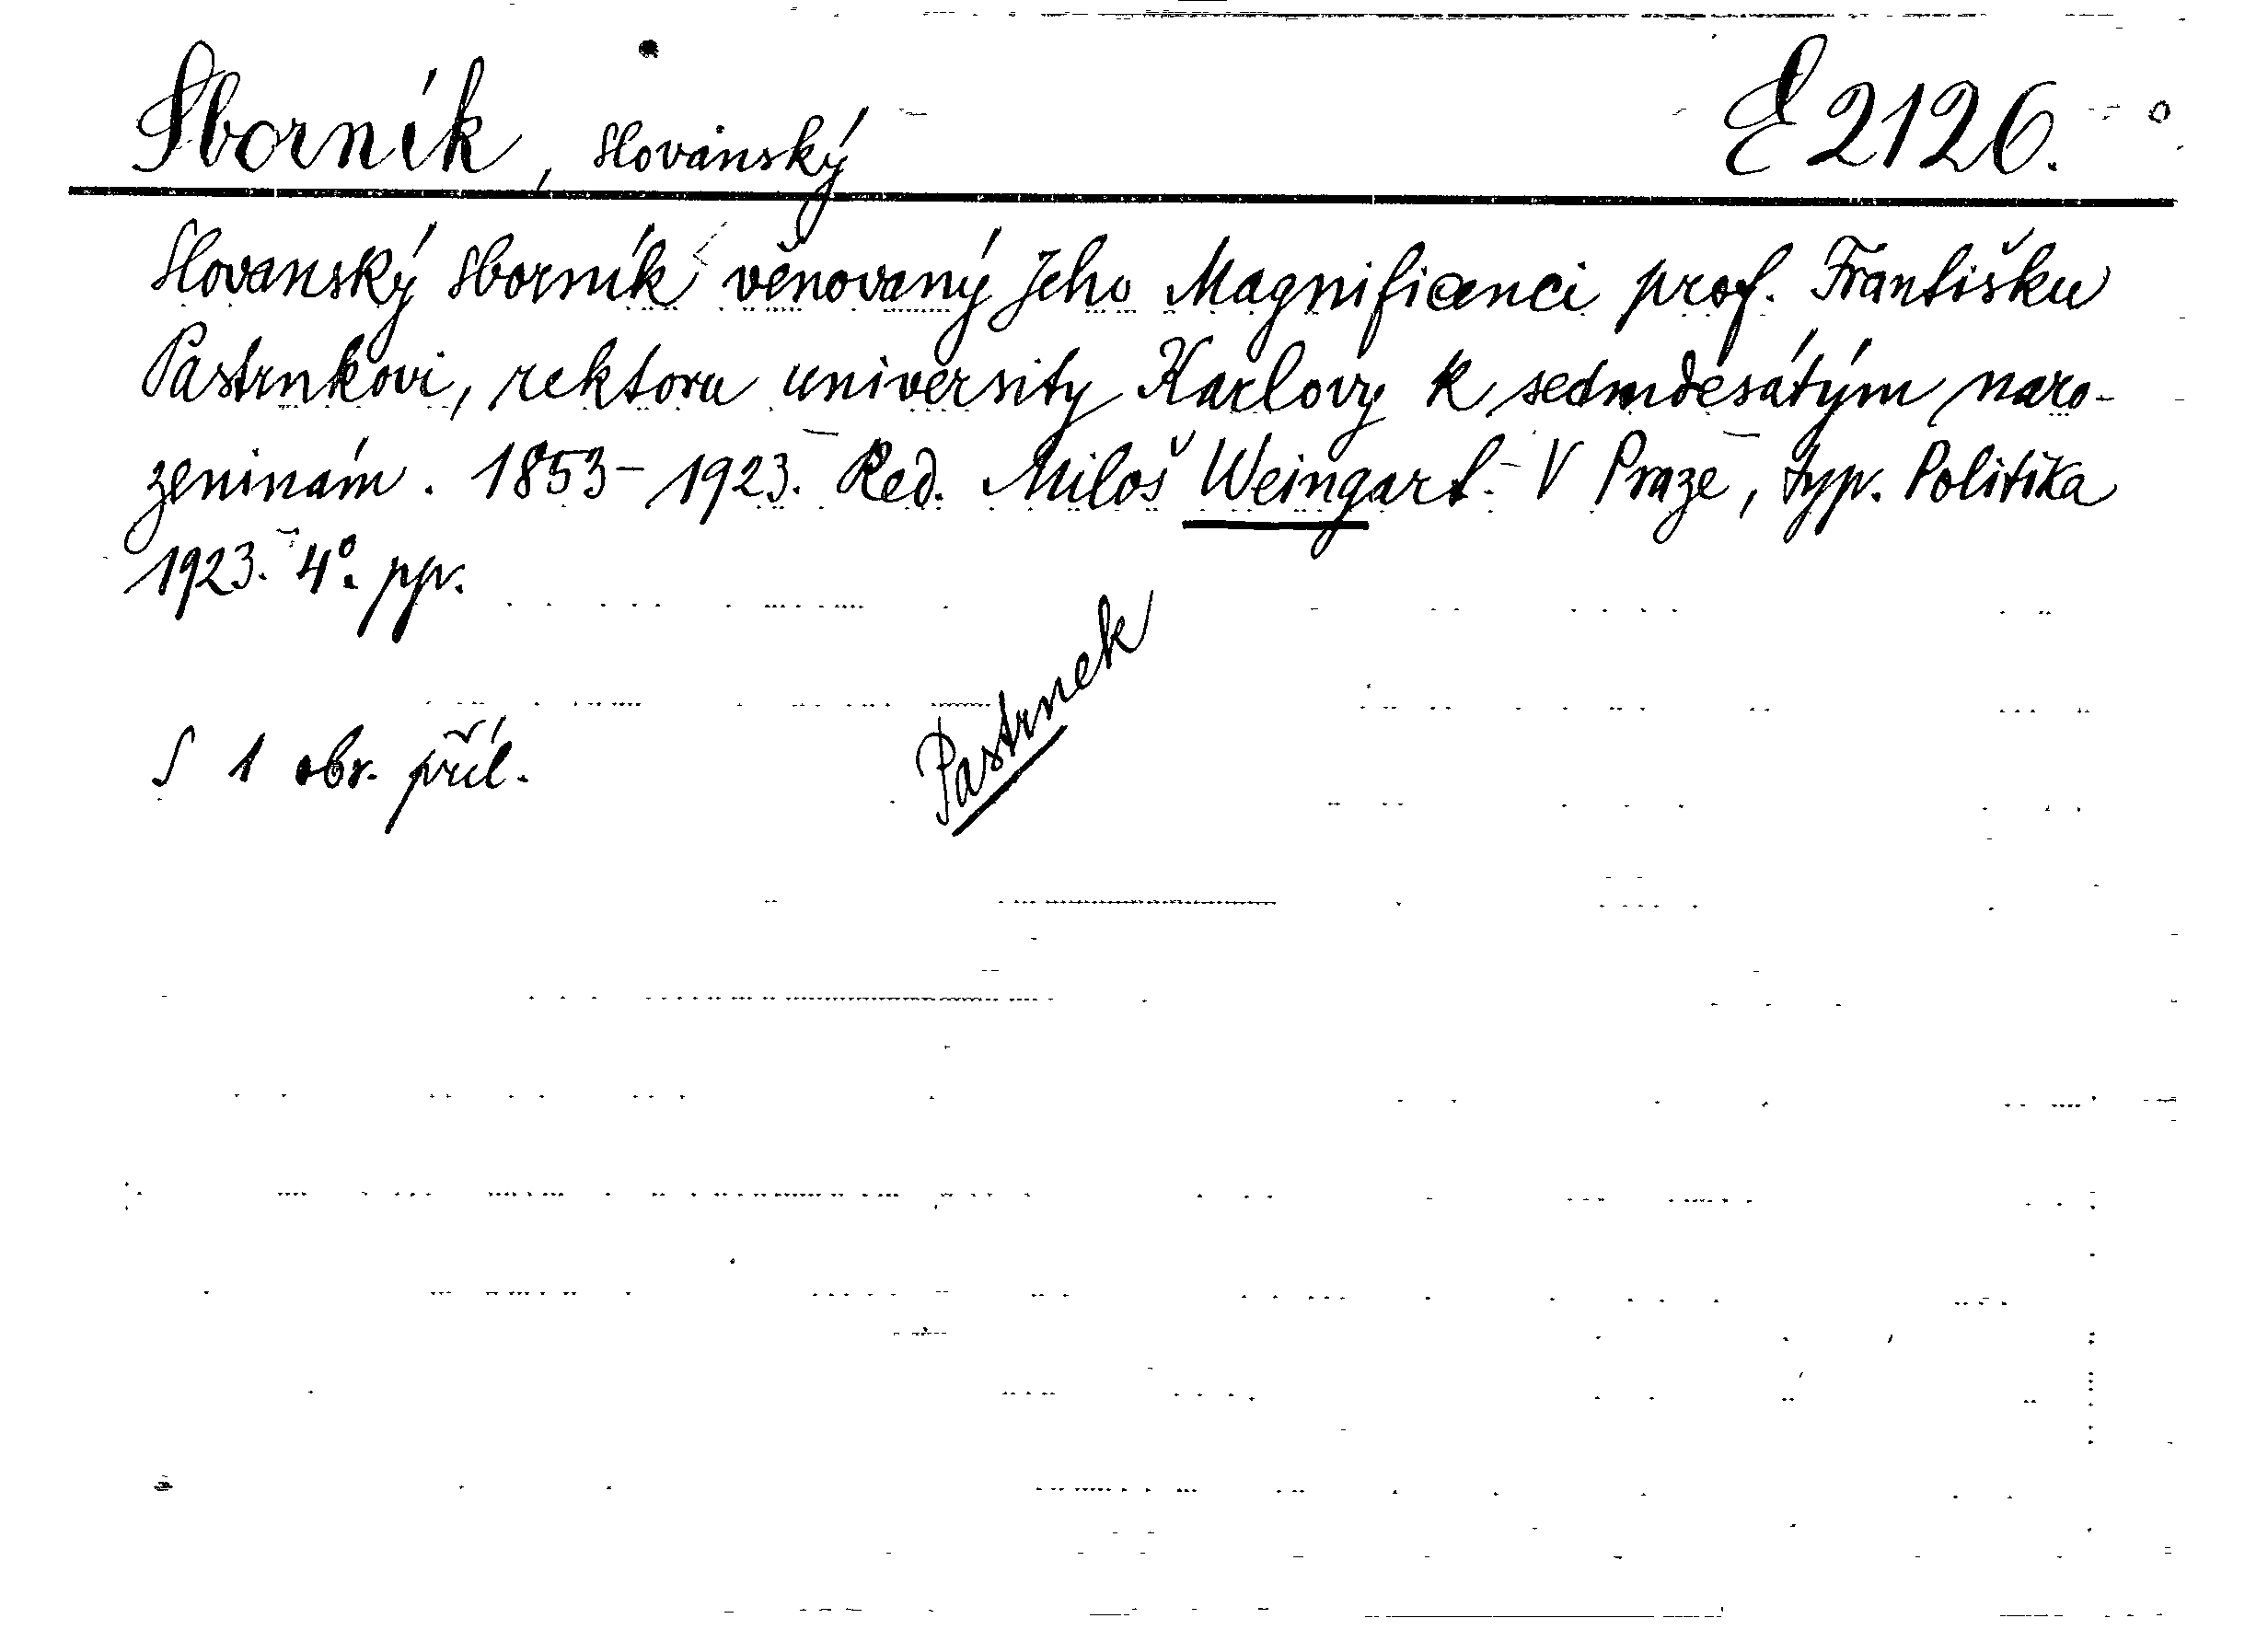 Sborník, slovanský E 2126.
Slovanský sborník věnovaný Jeho Magnificenci prof. Františku
Pastrnkovi, rektoru university Karlovy k sedmdesátým naro-
zeninám. 1853–1923. Red. Miloš Weingart. V Praze, typ. Politika
1923. 4°. pp.
S 1 obr. příl.
Pastrnek